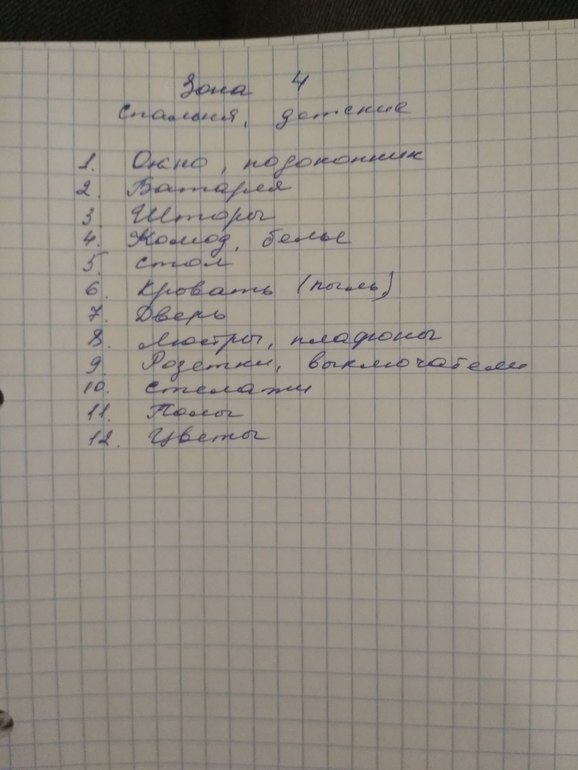 Зона 4
Спальня, детские
1. Окно, подоконник
2. Батарея
3. Шторы
4. Комод, белье
5. Стол
6. Кровать (пыль)
7. Дверь
8. Люстры, плафоны
9. Розетки, выключатели
10. Стелажи
11. Полы
12. Цветы